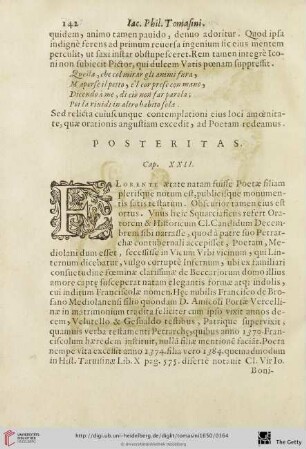 142 Iac. Phil. Tomasini.
quidem, animo tamen pavido, denuo adoritur. Quod ipsa
indignè ferens ad primum reversa ingenium sic eius mentem
perculit, ut saxi instar obstupesceret. Rem tamen integrè Ico-
ni non subiecit Pictor, qui dulcem Vatis pœnam suppressit.
Quella, che col mirar gli animi fura,
M'aperse il petto, e'l cor prese con mano,
Dicendo à me, di ciò non far parola:
Poi la rividi in altro habito sola.
Sed relicta cuiuscunque contemplationi eius loci amœnita-
te, quæ orationis angustiam excedit, ad Poetam redeamus.
POSTERITAS.
Cap. XXII.
FLORENTE ætate natam fuisse Poetæ filiam
plerisque notum est, publicisque monumen-
tis satis testatum. Obscurior tamen eius est
ortus. Unus hic Squarciaficus refert Ora-
torem & Historicum Cl. Candidum Decem-
brem sibi narrasse, quod à patre suo Petrar-
chæ contubernali accepisset, Poetam, Me-
diolani dum esset, secessisse in Vicum Vrbi vicinum, qui Lin-
ternum dicebatur, vulgo corruptè Infernum, ubi ex familiari
consuetudine fœminæ clarissimæ de Beccariorum domo illius
amore captæ susceperat natam elegantis formæ atq; indolis,
cui inditum Franciscolæ nomen. Hęc nubilis Francisco de Bro-
sano Mediolanensi filio quondam D. Amicoli Portæ Vercelli-
næ in matrimonium tradita feliciter cum ipso vixit annos de-
cem, Velutello & Gesualdo testibus, Patrique supervixit,
quanuis verba testamenti Petrarchæ, quibus anno 1370. Fran-
ciscolum hæredem instituit, nulla filiæ mentione faciat. Poeta
nempe vita excessit anno 1374. filia vero 1384. quemadmodum
in Hist. Tarvisina Lib. X pag. 575. disertè notavit Cl. Vir Io.
Boni-
http://digi.ub.uni-heidelberg.de/diglit/tomasini1650/0164
© Universitätsbibliothek Heidelberg
UNIVERSITÄTS-
BIBLIOTHEK
HEIDELBERG
The Getty